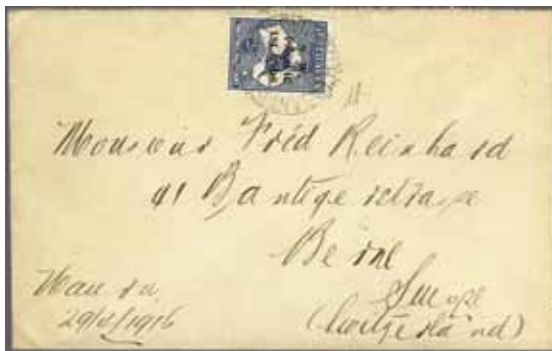 Monsieur Fréd Reinhard
41 Bantigerstrasse
Berne
Suisse
(Switzerland)
29/4/1916